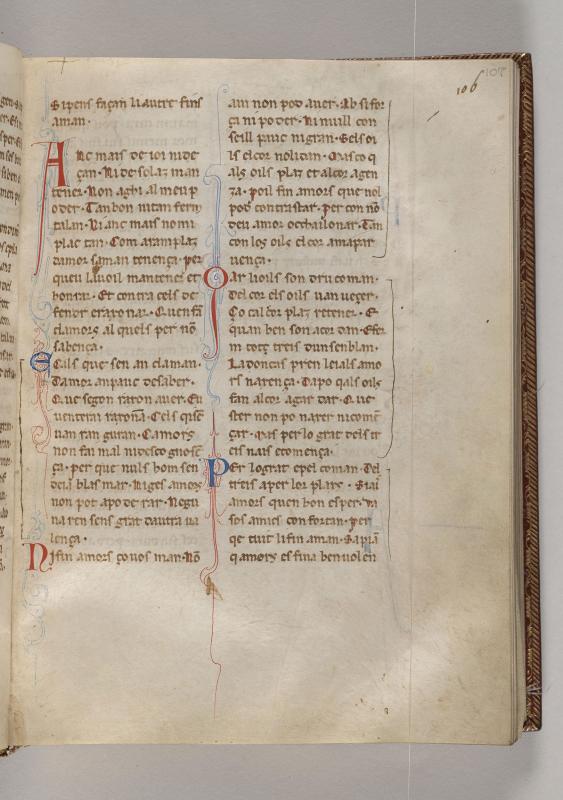 106
107
Si pens façam li auere fins
aman.
Anc mais de ioi nide
çan. Ni de solaz man
tener. Non agbi al meu p
oder. Tan bon uitan ferm
talan. Ni anc mais no mi
plac tan. Com aram plaz
damor saman tenença. per
queu lauoil mantener et
honrar. Et contra cels de
fendre
clamors al quels per nõ
sabença.
Cels que sen an claman.
Damor an pauc de saber.
Que segon raton auer. Eu
uenterai
uan ran guran. Camors
non fai mal ni desco gnosc
ça. per que nuls hom sen
deu blas mar. Ni ges amors
non pot apo de rar. Negu
na ren sens grat dautra ua
lença.
Ni fin amors ço uos man. Nõ
am non pod auer. Ab si for
ça ni po der. Ni nuill con
seill pauc ni gran. Sels oi
ls el cor nolidan. Mas co q
als oils plaz et al cor agen
za. poil fin amors que nol
pod contrastar. per con nõ
deu amor ochaisonar. Tan
con los oils el cor ama par
uença.
Car li oils son dru coman.
Del cor els oils uan ueçer.
Ço cal cor plaz retener. E
quan ben son acor dan. E fer
m totz treis dun senblan.
La doncas pren leials amo
rs narença. Dapo qals oils
fan al cor agar dar. Que
ster non po naxer ni comẽ
çar. Mas per lo grat dels tr
eis nais e comença.
Per lo grat e pel coman. Del
treis aper lor plazr. Nai
amors quen bon esper. Va
sos amics con fortan. per
qe tuit li fin aman. Sapiã
q amors es fina ben uolen